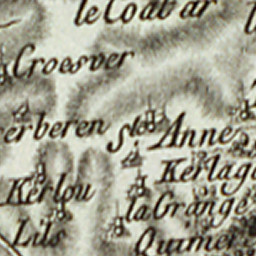 le Coat ar
Croesver
erberen Ste Anne
Kerlou
Kerlag
la Grange
Lils
Quimer